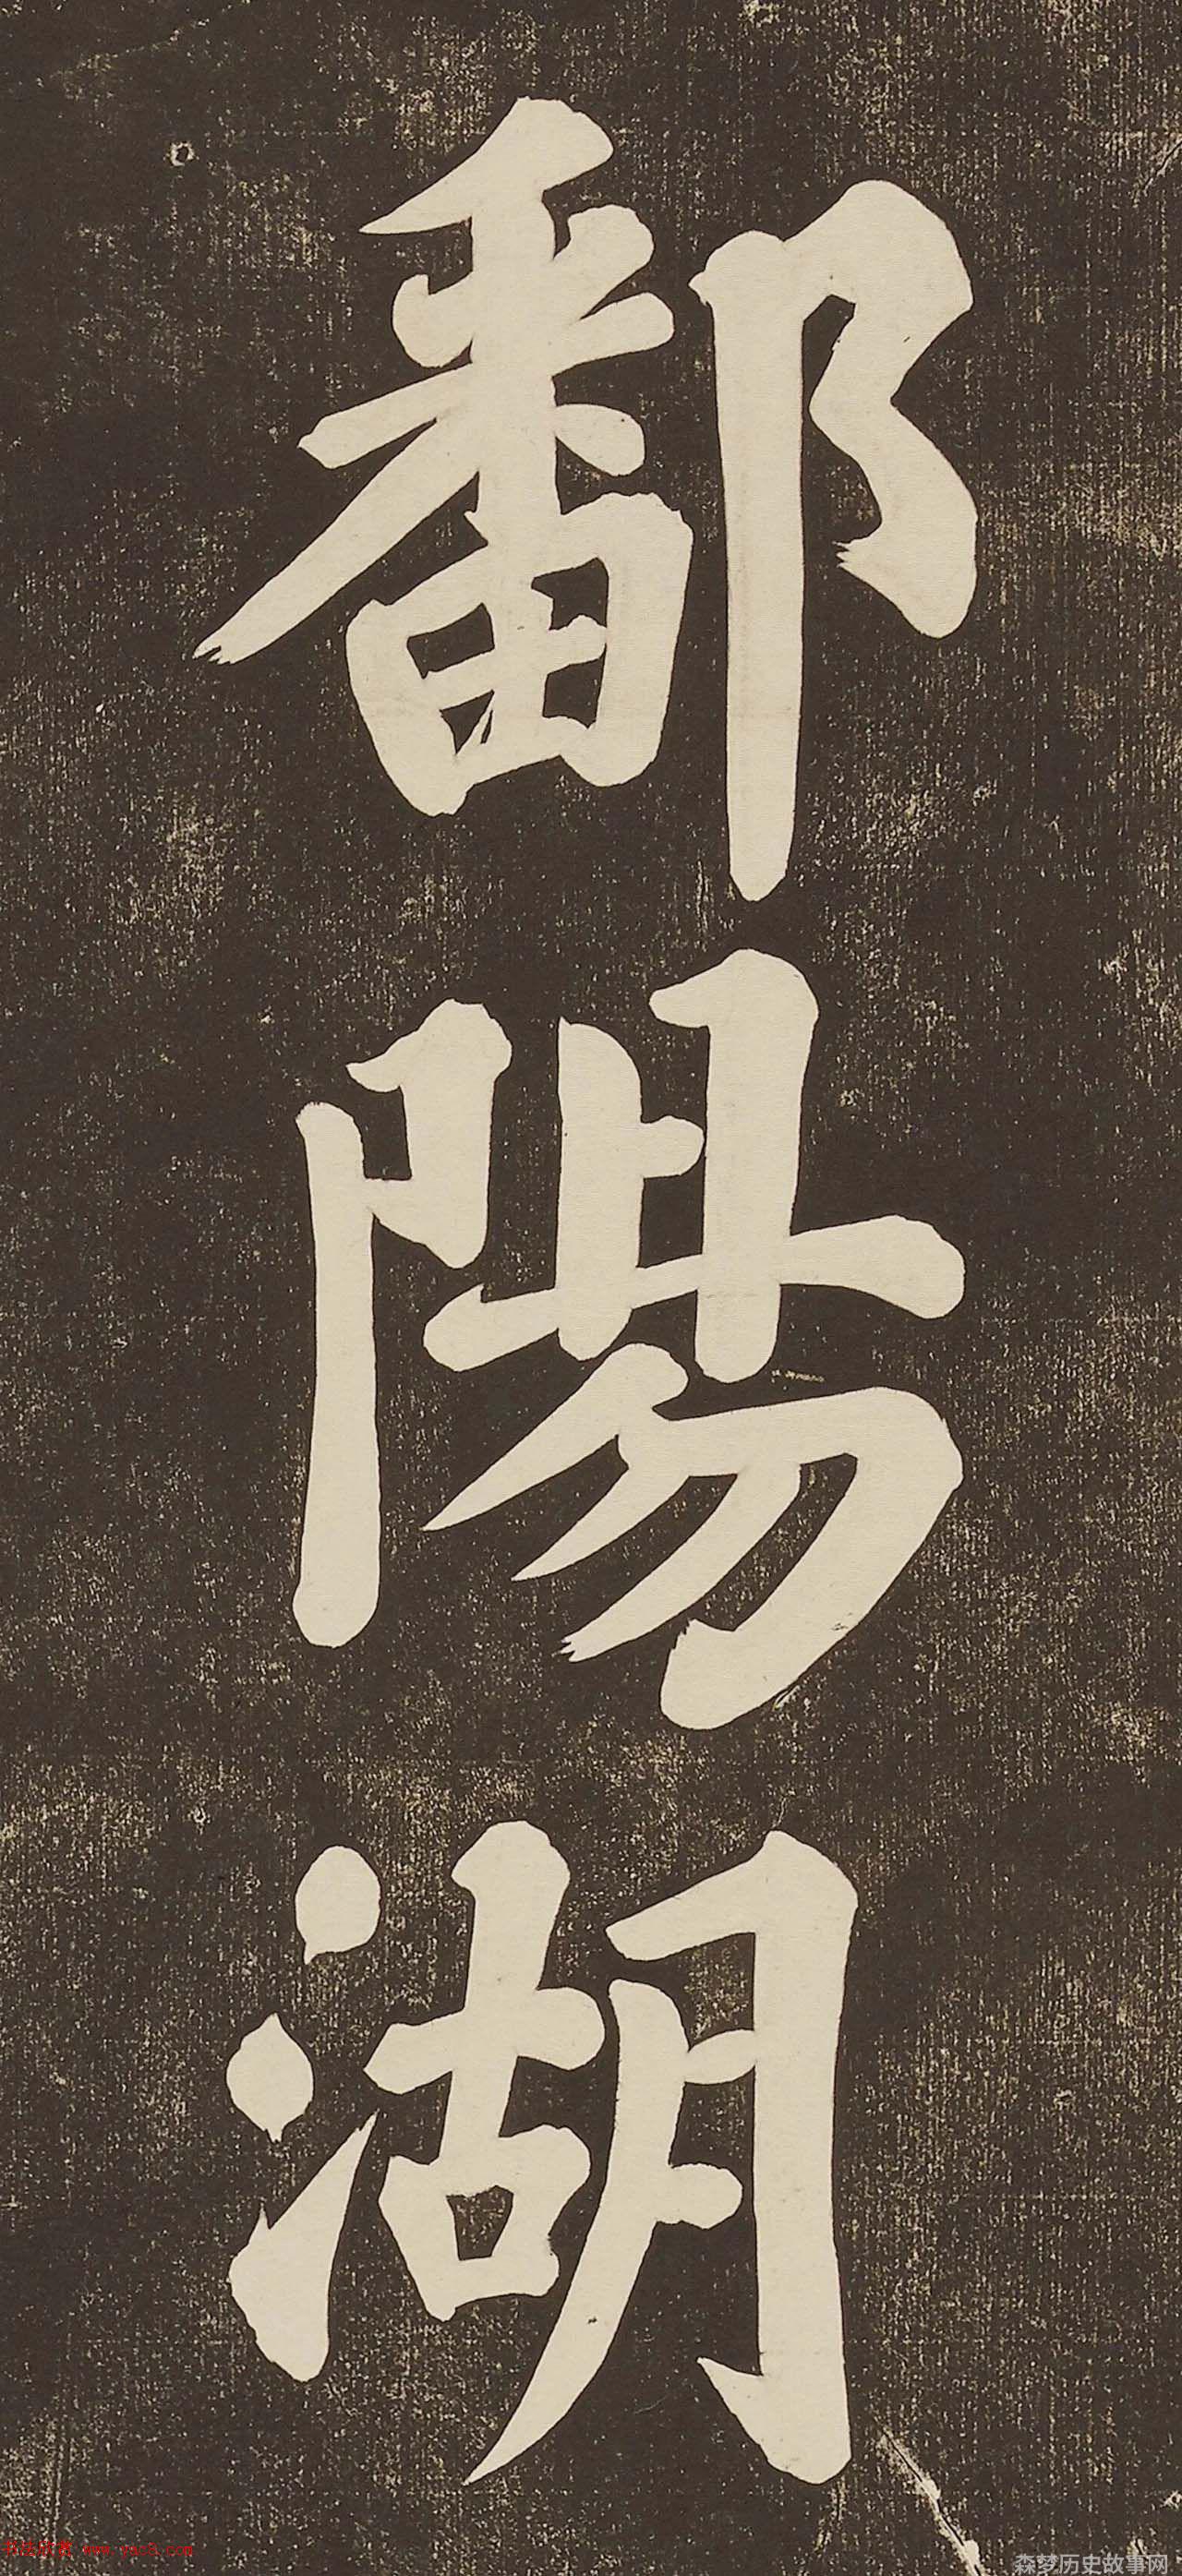 鄱陽湖
书法欣赏 www.yac8.com
森梦历史故事网